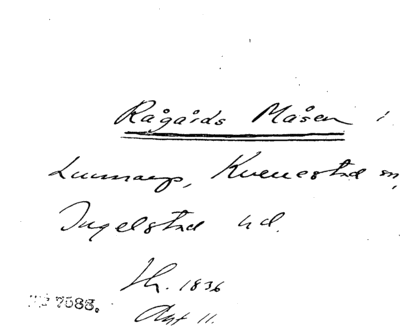 Rågårds Måsen i
Lunnarp, Kverrestad sn,
Ingelstad hd.
Sk. 1836
Akt 11.
№ 7583.